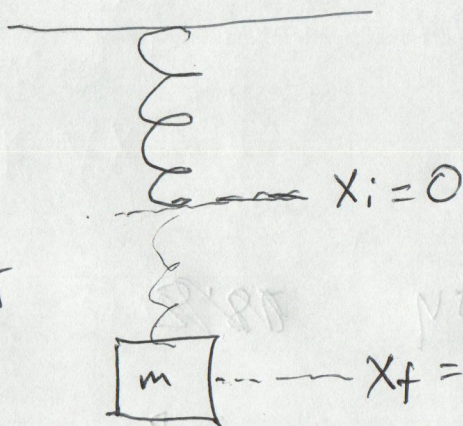 Xi = 0
m
Xf =